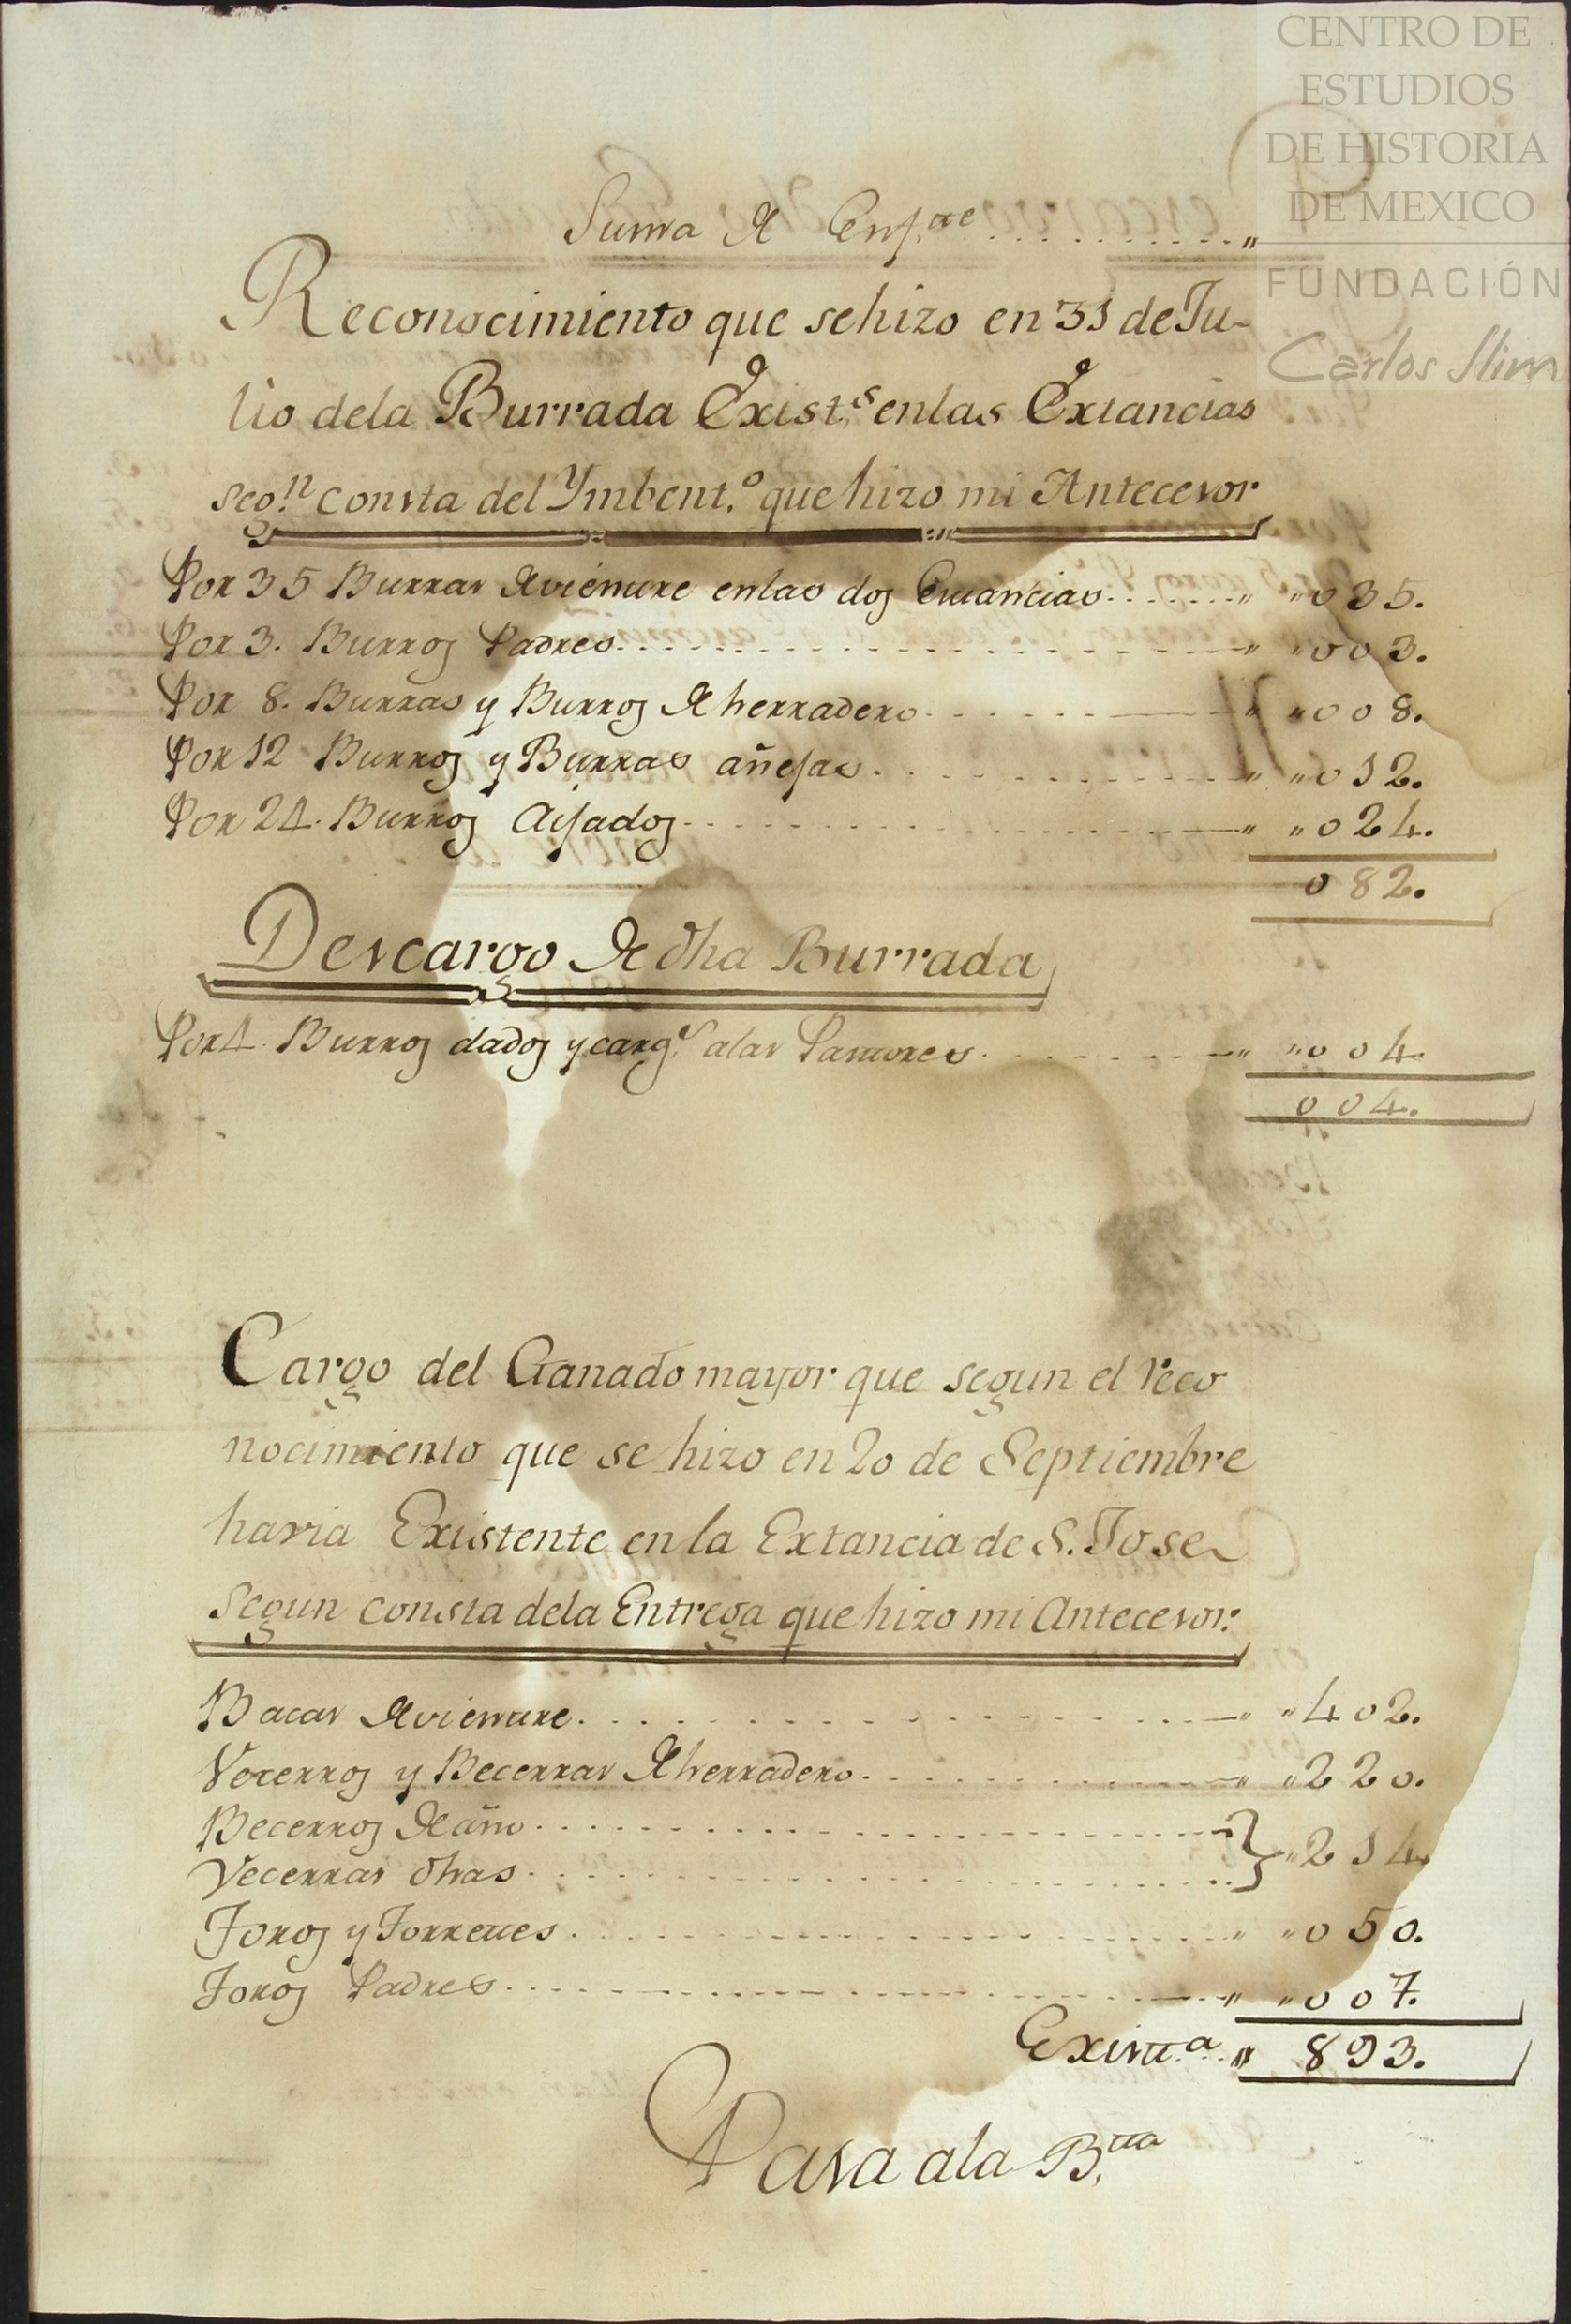 CENTRO DE
ESTUDIOS
DE HISTORIA
DE MEXICO
FUNDACIÓN
Carlos Slim
Suma de Enf.te
Reconocimiento que se hizo en 31 de Ju-
lio dela Burrada Exist.s en las Extancias
seg.n consta del Ymbent.o que hizo mi Antecesor
Por 35 Burras de vientre en las dos Estancias " " 035.
Por 3. Burros Padres " " 003.
Por 8. Burras y Burros de herradero " " 008.
Por 12 Burros y Burras añejas " " 012.
Por 24. Burros Aijados " " 024.
082.
Descargo de dha Burrada
Por 4 Burros dados y carg.s alas Pastores " " 004
004.
Cargo del Ganado mayor que segun el reco
nocimiento que se hizo en 20 de Septiembre
havia Existente en la Extancia de S. Jose
segun consta dela Entrega que hizo mi Antecesor.
Bacas de vientre " " 402.
Vecerros y Becerras de herradero " " 220.
Becerros de año
Vecerras dhas } " 214
Toros y Torretes " " 050.
Toros Padres " " 007.
Existt.a " 893.
Pasa ala B.tta